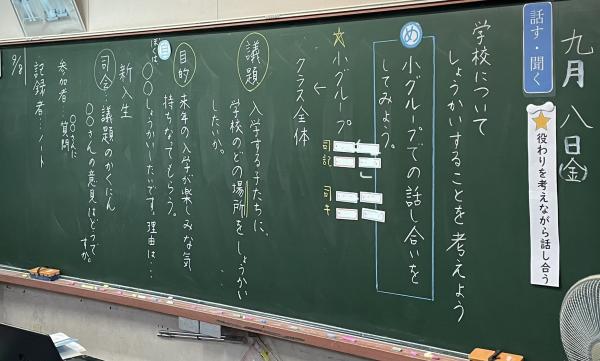 九月八日(金)
話す・聞く
役わりを考えながら話し合う
学校について
しょうかいすることを考えよう
め 小グループでの話し合いを
してみよう。
☆小グループ
司
記
司
キ
↓
クラス全体
議題 入学する子たちに、
学校のどの場所をしょうかい
したいか。
目的 来年の入学が楽しみな気
持ちなってもらう。
目
ぼくは
〇〇しょうかいしたいです。理由は…
新入生
司会…議題のかくにん
〇〇さんの意見はどうで
すか。
参加者…質問
〇〇さんに
記録者…ノート
9/8